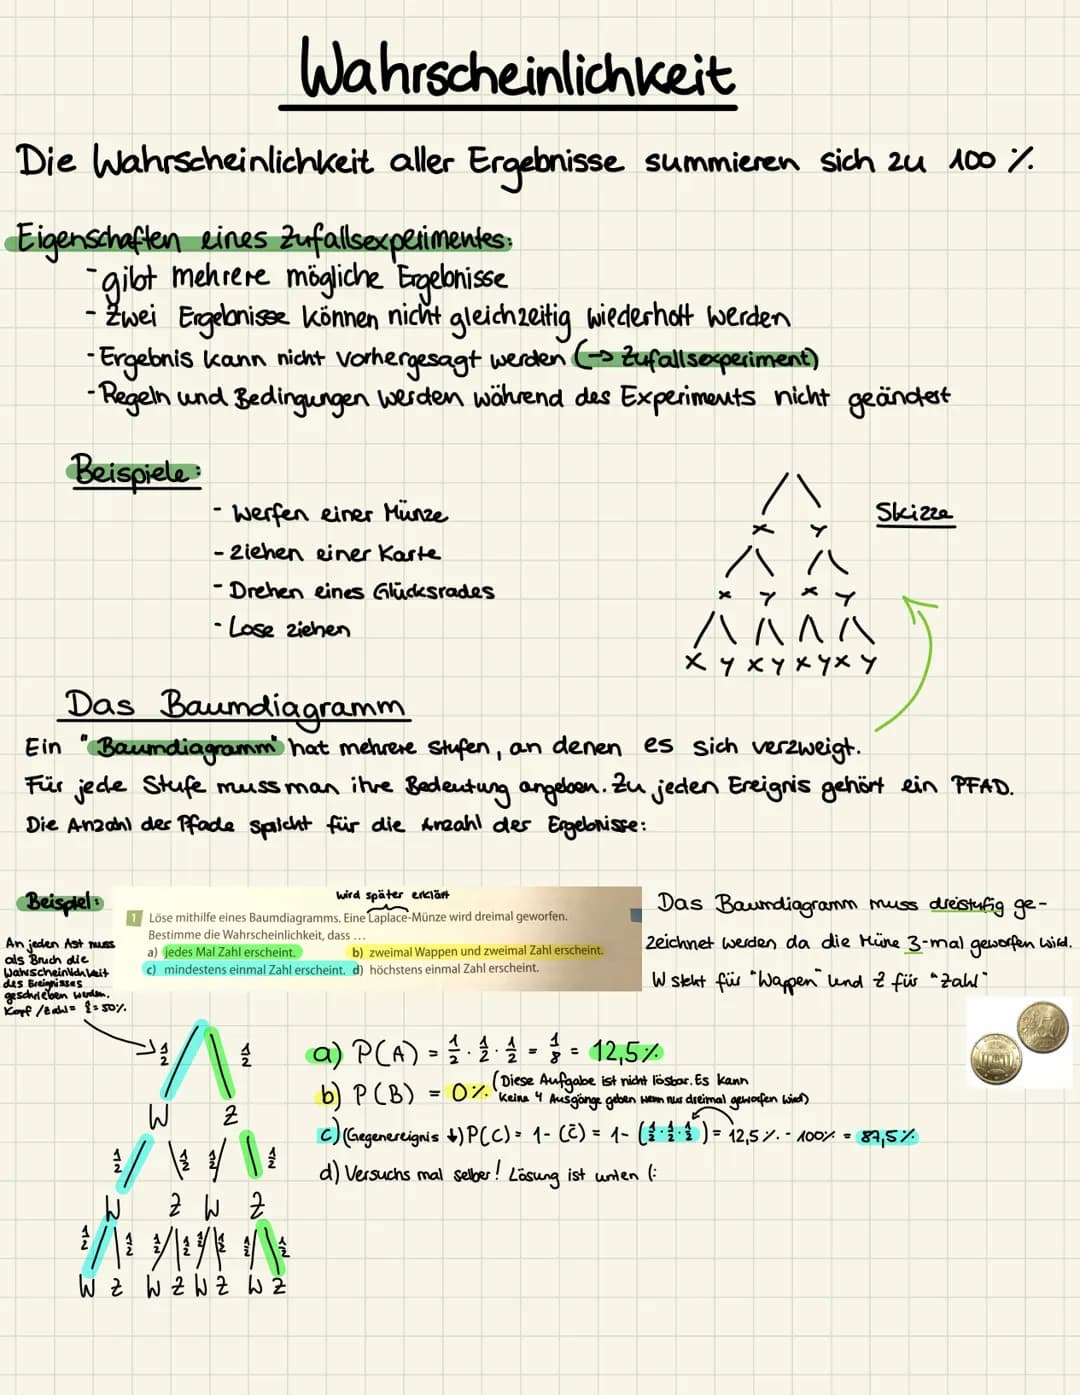 Wahrscheinlichkeit
Die Wahrscheinlichkeit aller Ergebnisse summieren sich zu 100 %.
Eigenschaften eines Zufallsexperimentes:
- gibt mehrere mögliche Ergebnisse
- Zwei Ergebnisse können nicht gleichzeitig wiederholt werden
- Ergebnis kann nicht vorhergesagt werden (→ Zufallsexperiment)
- Regeln und Bedingungen werden während des Experiments nicht geändert
Beispiele:
- Werfen einer Münze
- Ziehen einer Karte
- Drehen eines Glücksrades
- Lose ziehen
Skizze
x y
x y x y
x y x y x y x y
Das Baumdiagramm
Ein "Baumdiagramm" hat mehrere Stufen, an denen es sich verzweigt.
Für jede Stufe muss man ihre Bedeutung angeben. Zu jeden Ereignis gehört ein PFAD.
Die Anzahl der Pfade spricht für die Anzahl der Ergebnisse:
Beispiel:
wird später erklärt
1 Löse mithilfe eines Baumdiagramms. Eine Laplace-Münze wird dreimal geworfen.
Bestimme die Wahrscheinlichkeit, dass ...
a) jedes Mal Zahl erscheint. b) zweimal Wappen und zweimal Zahl erscheint.
c) mindestens einmal Zahl erscheint. d) höchstens einmal Zahl erscheint.
Das Baumdiagramm muss dreistufig ge-
zeichnet werden da die Müne 3-mal geworfen wird.
W steht für "Wappen" und Z für "Zahl"
An jeden Ast muss
als Bruch die
Wahrscheinlichkeit
des Ereignisses
geschrieben werden.
Kopf / Zahl = 1/2 = 50%.
a) P(A) = 1/2 · 1/2 · 1/2 = 1/8 = 12,5%
b) P(B) = 0%. (Diese Aufgabe ist nicht lösbar. Es kann
keine 4 Ausgänge geben wenn nur dreimal geworfen wird)
c) (Gegenereignis ↓) P(C) = 1 - (C̄) = 1 - (1/2 · 1/2 · 1/2) = 12,5%. - 100% = 87,5%
d) Versuchs mal selber! Lösung ist unten (:
1/2 1/2
W Z
1/2 1/2 1/2 1/2
W Z W Z
1/2 1/2 1/2 1/2 1/2 1/2 1/2 1/2
W Z W Z W Z W Z
50